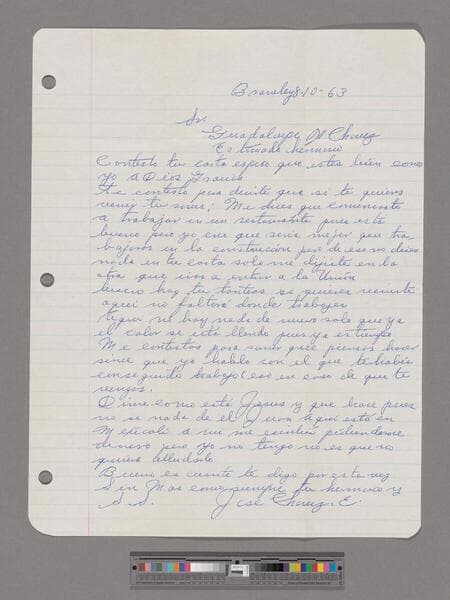 Brawley 8-10-63
Sr.
Guadalupe Chavez
Estimado hermano
Contesto tu carta espero que estes bien como
yo a Dios Gracias
Te contesto para decirte que si te quieres
venir tu sabes; Me dices que comensaste
a trabajar en un restaurante pues esta
bueno pero yo creo que seria mejor que tra
bajaras en la construccion pero de eso no dices
nada en tu carta solo me dijiste en la
otra que ivas a entrar a la Unión
bueno hay tu si quieres venirte
aqui no faltara donde trabajar
aqui no hay nada de nuevo solo que ya
el calor se esta llendo pues ya es tiempo
Me contestas para saber que piensas hacer
sirve que yo hablo con el que te habia
conseguido trabajo (eso en caso de que te
vengas.
Dime como está Jesus y que hace pues
no se nada de el Juan aqui está en
Mexicali a mi me escribio pidiendome
dinero pero yo no tengo no es que no
quiera alludarlo
Bueno es cuanto te digo por esta vez
Sin Mas como siempre tu hermano y
S.S. José Chavez E.